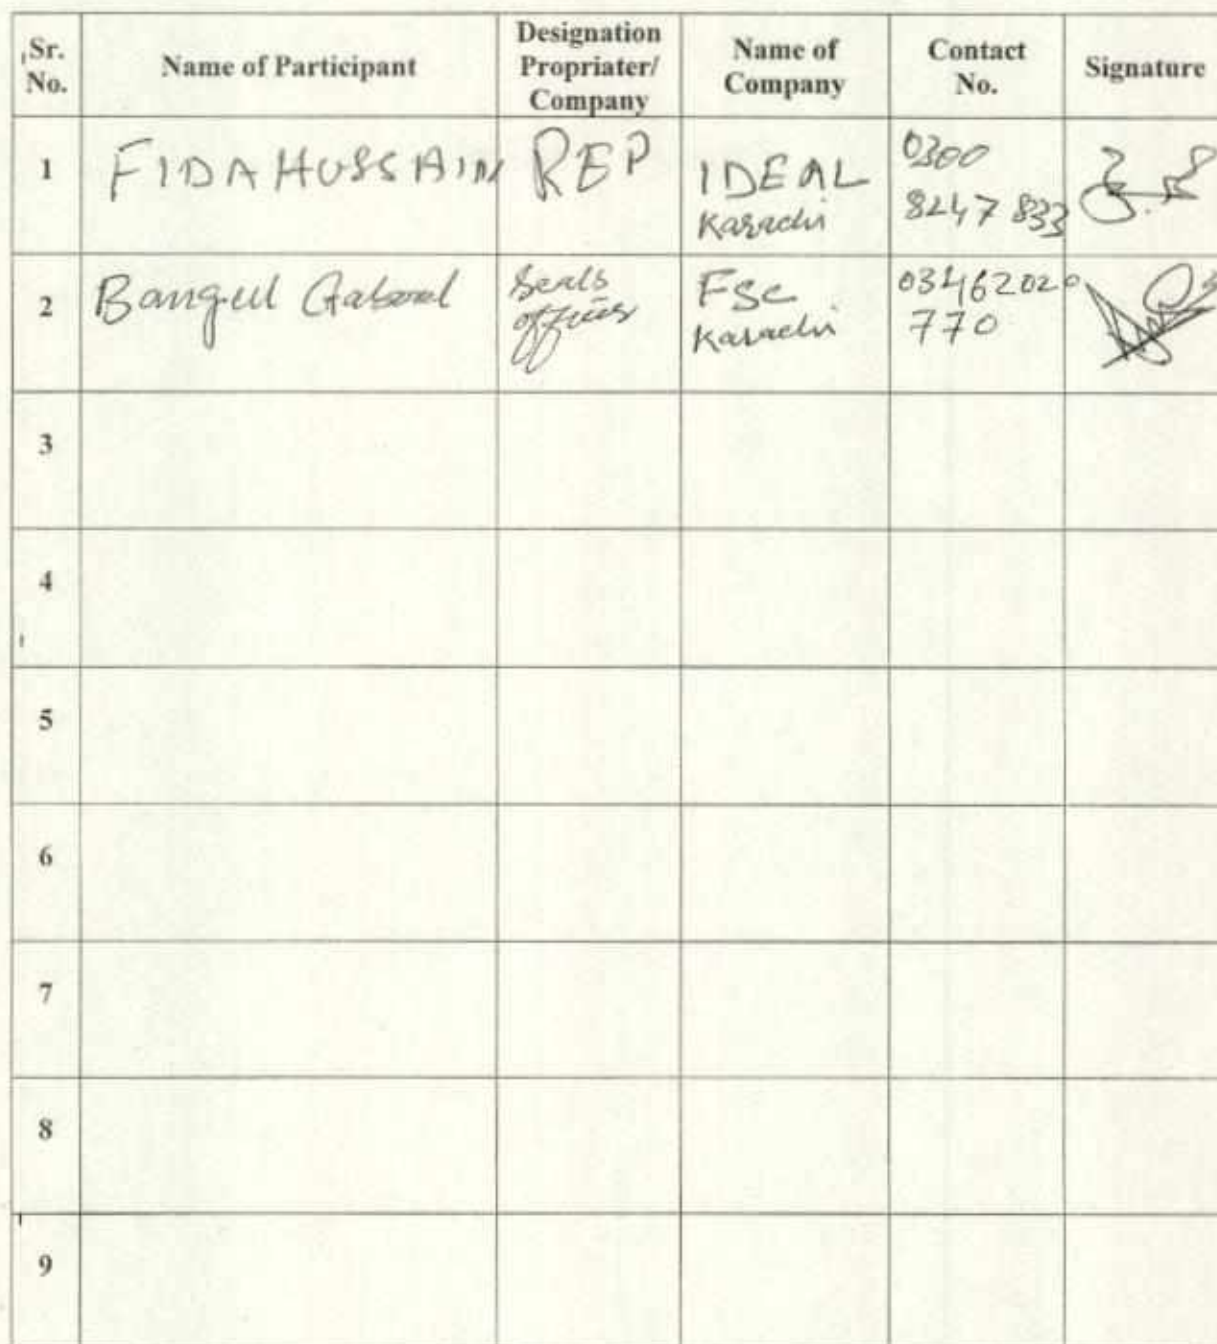 Sr. No.
Name of Participant
Designation Propriater/ Company
Name of Company
Contact No.
Signature
1
FIDA HUSSAIN
REP
IDEAL
Karachi
0300
8247 833
2
Bangul
FSC
Karachi
03462020
770
3
4
5
6
7
8
9